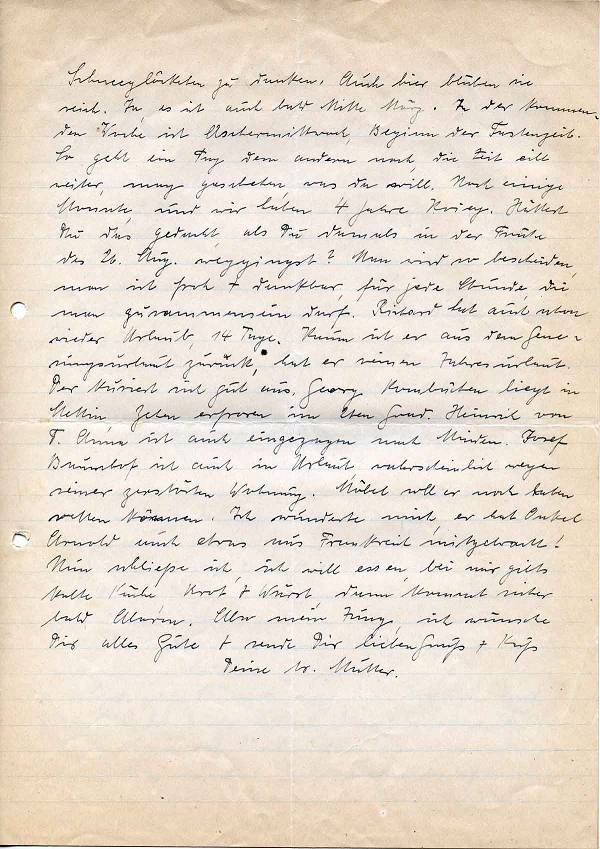 Schneeglöckchen zu denken. Auch hier blühen sie
reich. Ja, es ist auch bald Mitte März. In der kommen-
den Woche ist Aschermittwoch, Beginn der Fastenzeit.
So geht ein Tag dem andern nach, die Zeit eilt
weiter, mag geschehen was da will. Noch einige
Monate, und wir haben 4 Jahre Krieg. Hättest
Du das gedacht, als Du damals in der Frühe
des 26. Aug. weggingst? Man wird so bescheiden,
man ist froh + dankbar, für jede Stunde, die
man zusammensein darf. Richard hat auch schon
wieder Urlaub, 14 Tage. Kaum ist er aus dem Gene-
sungsurlaub zurück, hat er seinen Jahresurlaub.
Der kuriert sich gut aus. Georg liegt in
Stettin, Zehen erfroren im 2ten Grad. Heinrich von
T. Anna ist auch eingezogen nach Minden. Josef
ist auch in Urlaub wahrscheinlich wegen
seiner zerstörten Wohnung. Möbel soll er noch haben
retten können. Ich wunderte mich, er hat Onkel
Arnold auch etwas aus Frankreich mitgebracht!
Nun schließe ich, ich will essen, bei mir gibts
kalte Küche Brot + Wurst, dann kommt sicher
bald Alarm. Also mein Jung, ich wünsche
Dir alles Gute + sende Dir lieben Gruß + Kuß
Deine Mutter.